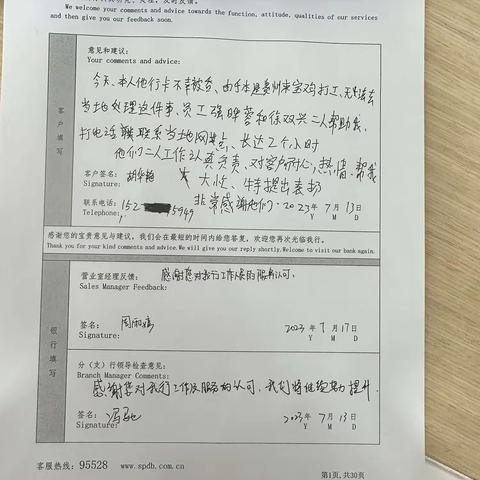 We welcome your comments and advice towards the function, attitude, qualities of our services
and then give you our feedback soon.
意见和建议:
Your comments and advice:
今天、本人他行卡不幸被吞、由于本是贵州来宝鸡打工、无法去
当地处理这件事、员工强晔蓉和徐双兴二人帮助我、
打电话联系当地网点、长达2个小时
他们二人工作认真负责、对客户耐心、热情、帮我
客户签名:
大忙、特提出表扬
Signature:
联系电话: 152 5949
非常感谢他们. 2023年7月13日
Telephone:
Y M D
客户填写
感谢您的宝贵意见与建议，我们会在最短的时间内给您答复，欢迎您再次光临我行。
Thank you for your kind comments and advice.We will give you our reply shortly.Welcome to visit our bank again.
营业室经理反馈: 感谢您对我行工作人员的服务认可.
Sales Manager Feedback:
签名: 周雨婷 2023年7月17日
Signature: Y M D
银行填写
分（支）行领导检查意见:
Branch Manager Comments:
感谢您对我行工作及服务的认可，我们将继续努力提升.
签名: 2023年7月13日
Signature: Y M D
客服热线: 95528 www.spdb.com.cn
第1页,共30页